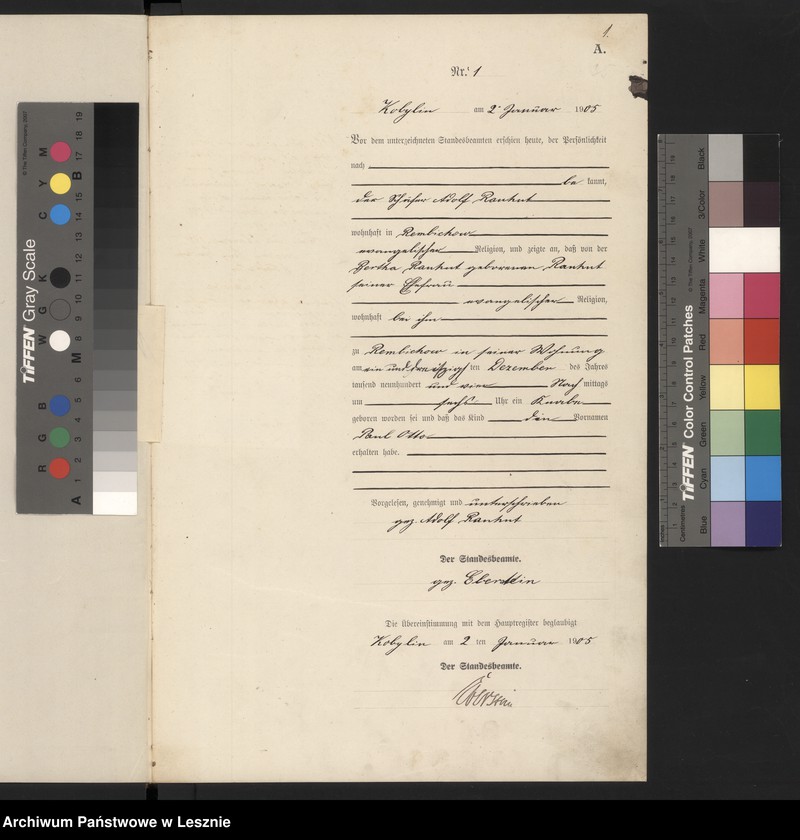 1.
A.
Nr. 1
Kobylin am 2 Januar 1905
Vor dem unterzeichneten Standesbeamten erschien heute, der Persönlichkeit
nach
be kannt,
der Adolf Rankut
wohnhaft in Rembichow
evangelischer Religion, und zeigte an, daß von der
Bertha Rankut geborenen Rankut
seiner Ehefrau
evangelischer Religion,
wohnhaft bei ihm
zu Rembichow in seiner Wohnung
am ein und dreißigsten Dezember des Jahres
tausend neunhundert und vier Nach mittags
um sechs Uhr ein Knabe
geboren worden sei und daß das Kind den Vornamen
Paul Otto
erhalten habe.
Vorgelesen, genehmigt und unterschrieben
gez. Adolf Rankut
Der Standesbeamte.
gez. Eberstein
Die Übereinstimmung mit dem Hauptregister beglaubigt
Kobylin am 2 ten Januar 1905
Der Standesbeamte.
Eberstein
TIFFEN Gray Scale
© The Tiffen Company, 2007
R G B W G K C Y M
A 1 2 3 4 5 6 M 8 9 10 11 12 13 14 15 B 17 18 19
TIFFEN Color Control Patches
© The Tiffen Company, 2007
Centimetres
Blue Cyan Green Yellow Red Magenta White 3/Color Black
Archiwum Państwowe w Lesznie